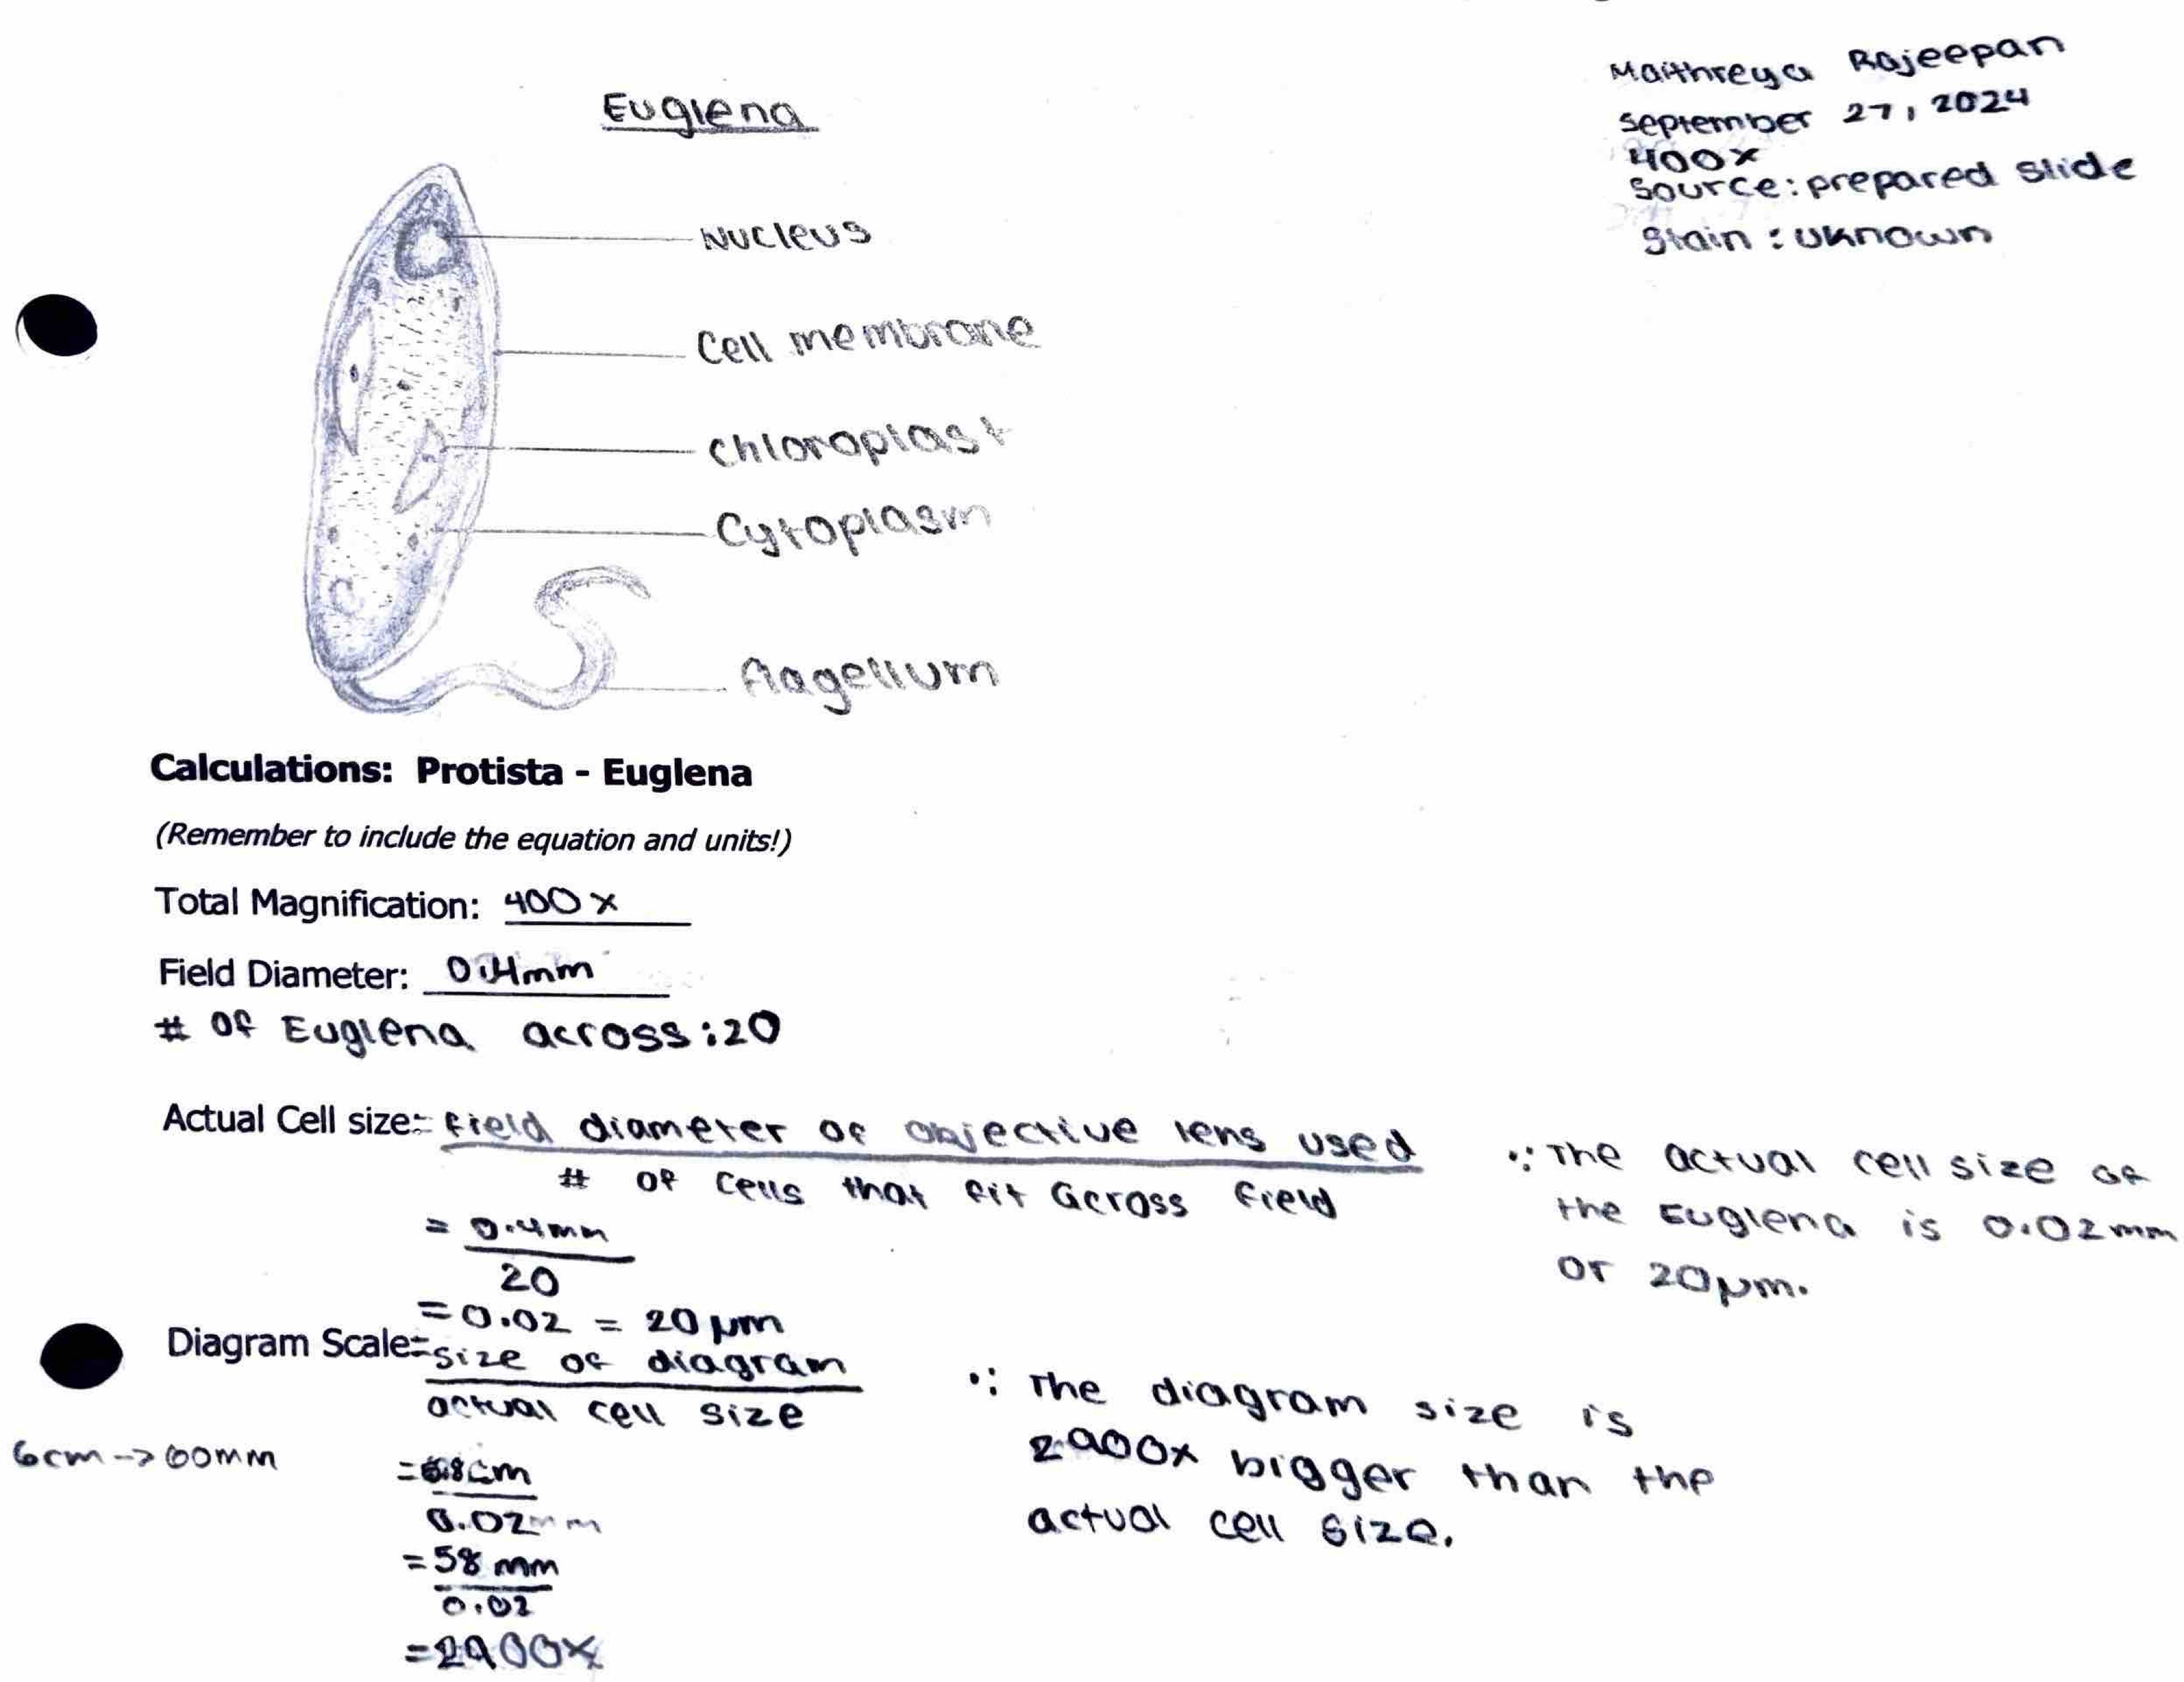 Maithreya Rajeepan
September 27, 2024
400x
Source: prepared slide
Stain: uknown
Euglena
Nucleus
Cell membrane
Chloroplast
Cytoplasm
flagellum
Calculations: Protista - Euglena
(Remember to include the equation and units!)
Total Magnification: 400x
Field Diameter: 0.4mm
# of Euglena across: 20
Actual Cell size= field diameter of objective lens used
# of cells that fit across field
= 0.4mm
20
= 0.02 = 20 µm
∴ The actual cell size of
the Euglena is 0.02mm
or 20µm.
Diagram Scale= size of diagram
actual cell size
6cm -> 60mm
= 5.8cm
0.02mm
= 58 mm
0.02
= 2900x
∴ The diagram size is
2900x bigger than the
actual cell size.